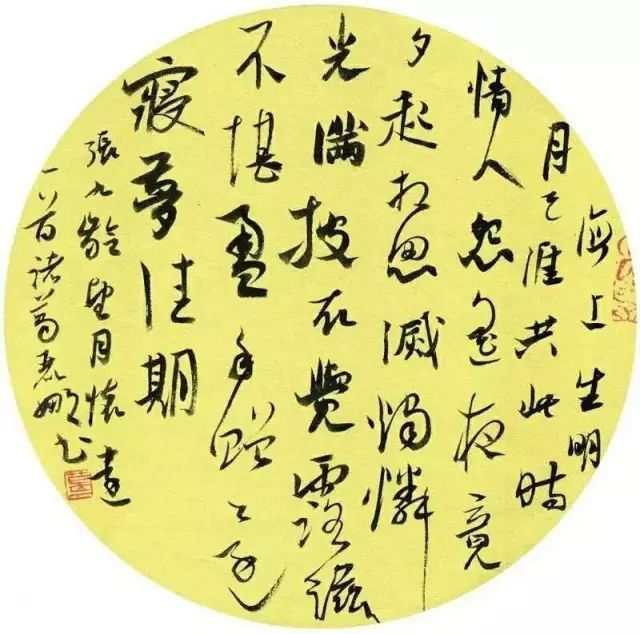 海上生明
月天涯共此時
情人怨遙夜竟
夕起相思滅燭憐
光滿披衣覺露滋
不堪盈手贈還
寢夢佳期
張九齡望月懷遠
一首諸葛麗娜書